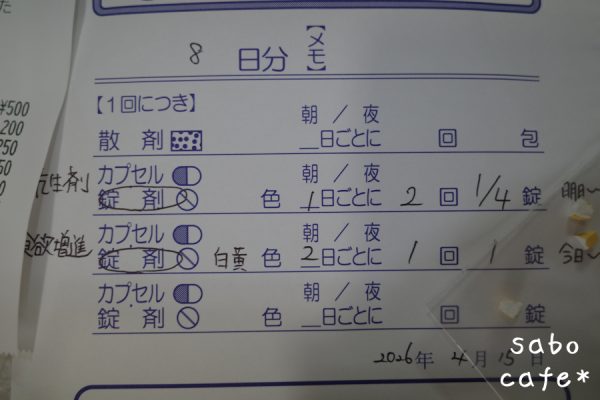 ¥500
200
250
50
8 日分 【メモ】
【1回につき】
散剤 朝／夜 日ごとに 回 包
抗生剤 カプセル 錠剤 色 朝／夜 1日ごとに 2回 1/4錠 明〜
食欲増進 カプセル 錠剤 白黄色 朝／夜 2日ごとに 1回 1錠 今日〜
カプセル 錠剤 色 朝／夜 日ごとに 回 錠
2026年4月15日
sabo
cafe*